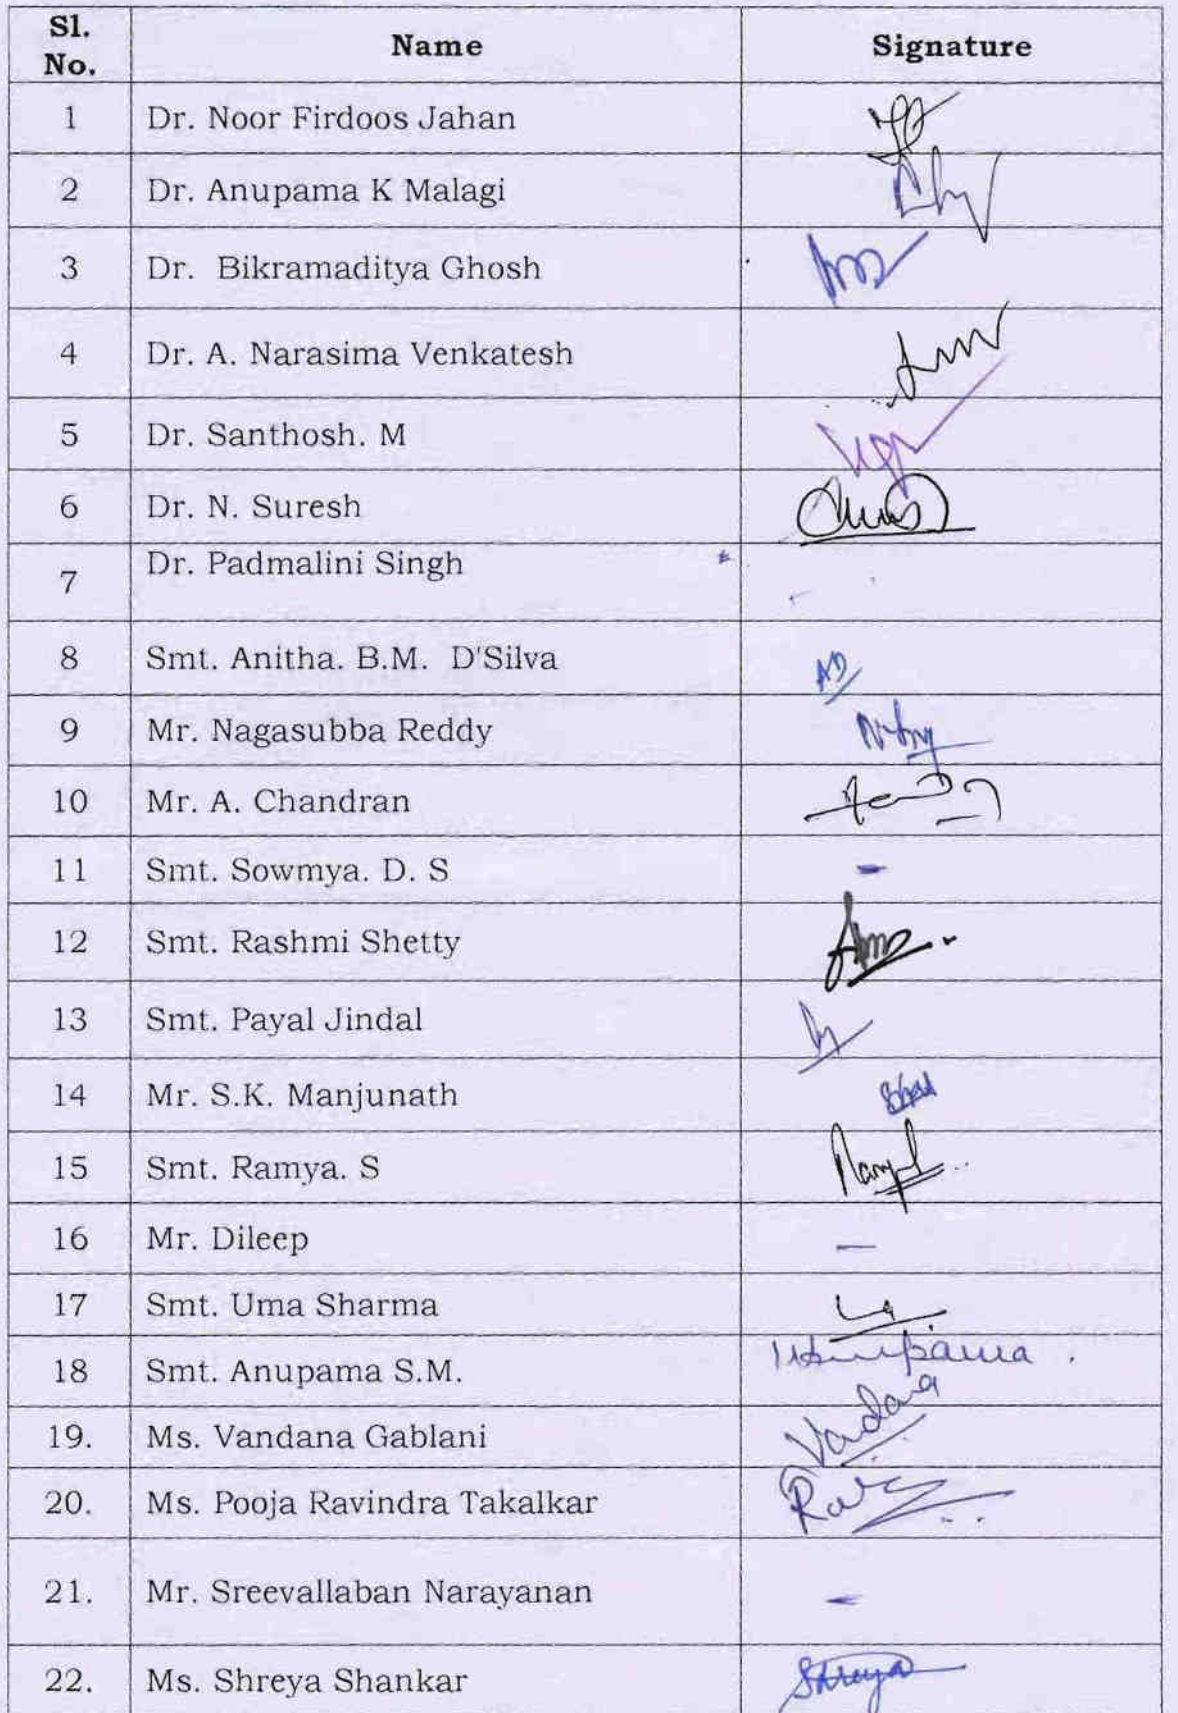 Sl. No. Name Signature
1 Dr. Noor Firdoos Jahan
2 Dr. Anupama K Malagi
3 Dr. Bikramaditya Ghosh
4 Dr. A. Narasima Venkatesh
5 Dr. Santhosh. M
6 Dr. N. Suresh
7 Dr. Padmalini Singh
8 Smt. Anitha. B.M. D'Silva AD
9 Mr. Nagasubba Reddy
10 Mr. A. Chandran
11 Smt. Sowmya. D. S -
12 Smt. Rashmi Shetty
13 Smt. Payal Jindal
14 Mr. S.K. Manjunath
15 Smt. Ramya. S
16 Mr. Dileep -
17 Smt. Uma Sharma
18 Smt. Anupama S.M.
19. Ms. Vandana Gablani Vandana
20. Ms. Pooja Ravindra Takalkar
21. Mr. Sreevallaban Narayanan -
22. Ms. Shreya Shankar Shreya